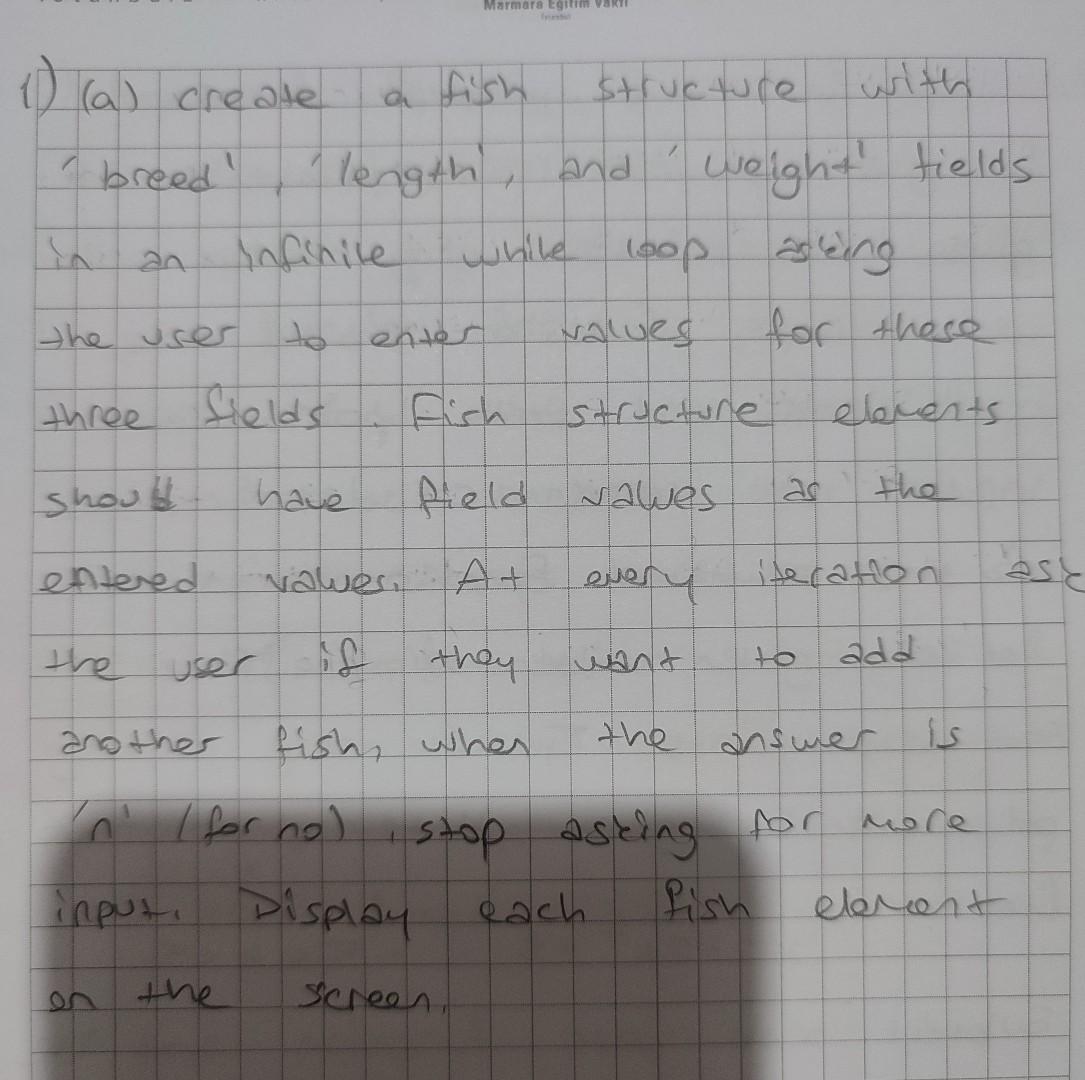 Marmara Eğitim Vakfı
1) (a) create a fish structure with
'breed', 'length', and 'weight' fields
in an infinite while loop asking
the user to enter values for these
three fields. Fish structure elements
should have field values as the
entered values. At every iteration ask
the user if they want to add
another fish, when the answer is
'n' (for no), stop asking for more
input. Display each fish element
on the screen.